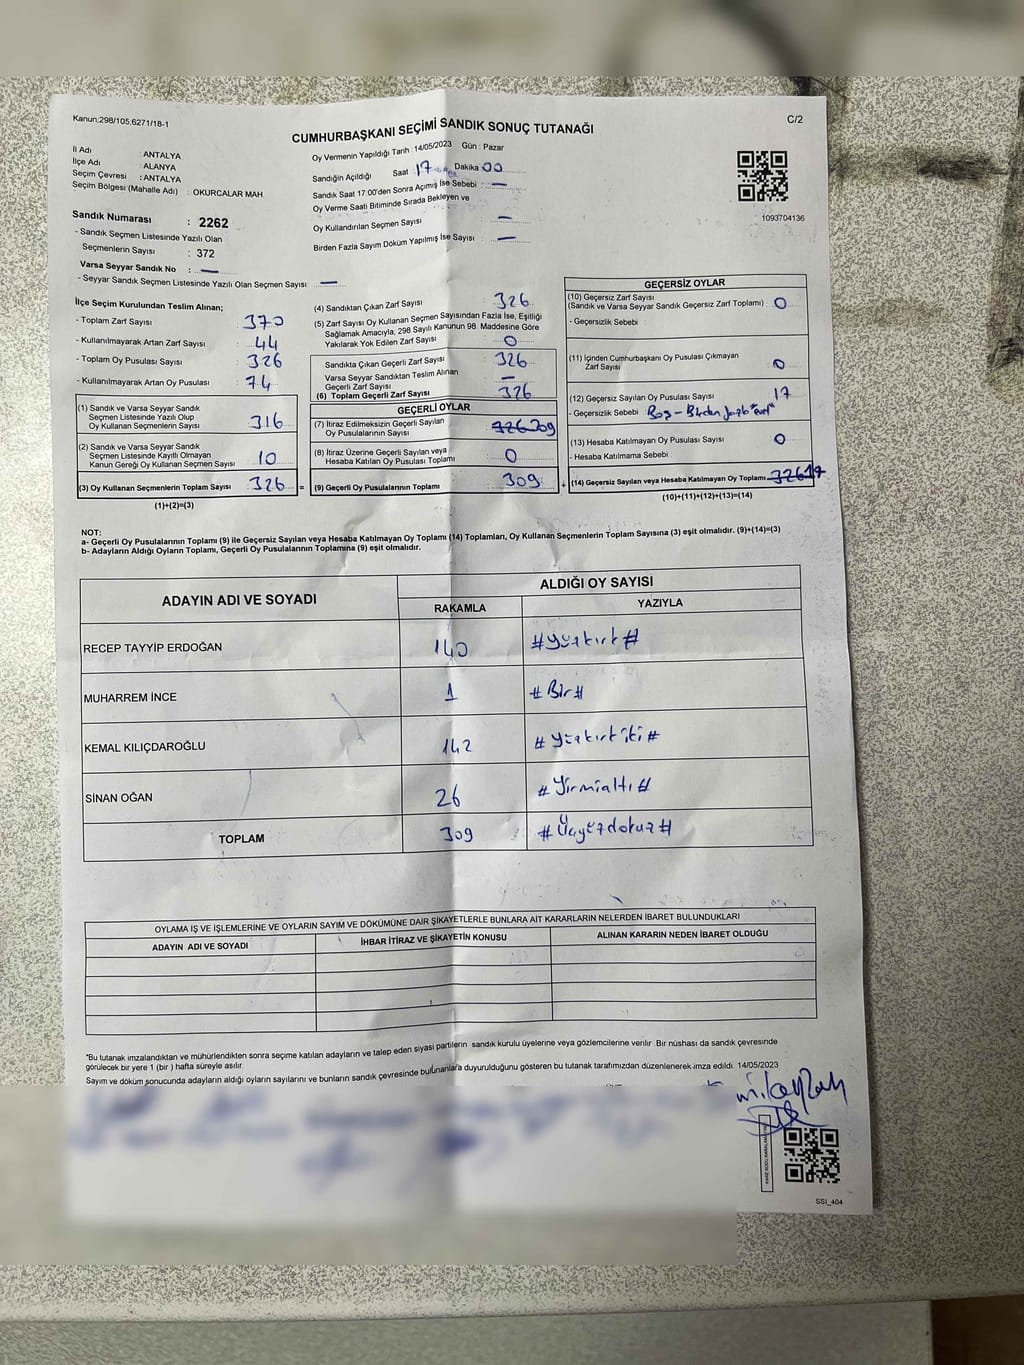 Kanun;298/105,6271/18-1
C/2
CUMHURBAŞKANI SEÇİMİ SANDIK SONUÇ TUTANAĞI
İl Adı : ANTALYA
İlçe Adı : ALANYA
Seçim Çevresi : ANTALYA
Seçim Bölgesi (Mahalle Adı) : OKURCALAR MAH
Sandık Numarası : 2262
- Sandık Seçmen Listesinde Yazılı Olan
Seçmenlerin Sayısı : 372
Varsa Seyyar Sandık No : —
- Seyyar Sandık Seçmen Listesinde Yazılı Olan Seçmen Sayısı: —
Oy Vermenin Yapıldığı Tarih : 14/05/2023 Gün : Pazar
Sandığın Açıldığı Saat 17 Dakika 00
Sandık Saat 17.00'den Sonra Açımış İse Sebebi : —
Oy Verme Saati Bitiminde Sırada Bekleyen ve
Oy Kullandırılan Seçmen Sayısı —
Birden Fazla Sayım Döküm Yapılmış İse Sayısı : —
1093704136
İlçe Seçim Kurulundan Teslim Alınan;
- Toplam Zarf Sayısı 370
- Kullanılmayarak Artan Zarf Sayısı 44
- Toplam Oy Pusulası Sayısı 326
- Kullanılmayarak Artan Oy Pusulası 74
(1) Sandık ve Varsa Seyyar Sandık
Seçmen Listesinde Yazılı Olup
Oy Kullanan Seçmenlerin Sayısı 316
(2) Sandık ve Varsa Seyyar Sandık
Seçmen Listesinde Kayıtlı Olmayan
Kanun Gereği Oy Kullanan Seçmen Sayısı 10
(3) Oy Kullanan Seçmenlerin Toplam Sayısı 326 =
(1)+(2)=(3)
(4) Sandıktan Çıkan Zarf Sayısı 326
(5) Zarf Sayısı Oy Kullanan Seçmen Sayısından Fazla İse, Eşitliği
Sağlamak Amacıyla, 298 Sayılı Kanunun 98. Maddesine Göre
Yakılarak Yok Edilen Zarf Sayısı 0
Sandıkta Çıkan Geçerli Zarf Sayısı 326
Varsa Seyyar Sandıktan Teslim Alınan
Geçerli Zarf Sayısı —
(6) Toplam Geçerli Zarf Sayısı 326
GEÇERLİ OYLAR
(7) İtiraz Edilmeksizin Geçerli Sayılan
Oy Pusulalarının Sayısı 326 309
(8) İtiraz Üzerine Geçerli Sayılan veya
Hesaba Katılan Oy Pusulası Toplamı 0
(9) Geçerli Oy Pusulalarının Toplamı 309 +
GEÇERSİZ OYLAR
(10) Geçersiz Zarf Sayısı
(Sandık ve Varsa Seyyar Sandık Geçersiz Zarf Toplamı) 0
- Geçersizlik Sebebi :
(11) İçinden Cumhurbaşkanı Oy Pusulası Çıkmayan
Zarf Sayısı 0
(12) Geçersiz Sayılan Oy Pusulası Sayısı 17
- Geçersizlik Sebebi Boş - Birden fazla
(13) Hesaba Katılmayan Oy Pusulası Sayısı 0
- Hesaba Katılmama Sebebi :
(14) Geçersiz Sayılan veya Hesaba Katılmayan Oy Toplamı 326 17
(10)+(11)+(12)+(13)=(14)
NOT:
a- Geçerli Oy Pusulalarının Toplamı (9) ile Geçersiz Sayılan veya Hesaba Katılmayan Oy Toplamı (14) Toplamları, Oy Kullanan Seçmenlerin Toplam Sayısına (3) eşit olmalıdır. (9)+(14)=(3)
b- Adayların Aldığı Oyların Toplamı, Geçerli Oy Pusulalarının Toplamına (9) eşit olmalıdır.
ADAYIN ADI VE SOYADI
ALDIĞI OY SAYISI
RAKAMLA YAZIYLA
RECEP TAYYİP ERDOĞAN 140 #Yüzkırk#
MUHARREM İNCE 1 #Bir#
KEMAL KILIÇDAROĞLU 142 #Yüzkırkiki#
SİNAN OĞAN 26 #Yirmialtı#
TOPLAM 309 #Üçyüzdokuz#
OYLAMA İŞ VE İŞLEMLERİNE VE OYLARIN SAYIM VE DÖKÜMÜNE DAİR ŞİKAYETLERLE BUNLARA AİT KARARLARIN NELERDEN İBARET BULUNDUKLARI
ADAYIN ADI VE SOYADI İHBAR İTİRAZ VE ŞİKAYETİN KONUSU ALINAN KARARIN NEDEN İBARET OLDUĞU
*Bu tutanak imzalandıktan ve mühürlendikten sonra seçime katılan adayların ve talep eden siyasi partilerin sandık kurulu üyelerine veya gözlemcilerine verilir .Bir nüshası da sandık çevresinde
görülecek bir yere 1 (bir ) hafta süreyle asılır.
Sayım ve döküm sonucunda adayların aldığı oyların sayılarını ve bunların sandık çevresinde bulunanlara duyurulduğunu gösteren bu tutanak tarafımızdan düzenlenerek imza edildi. 14/05/2023
SSI_404